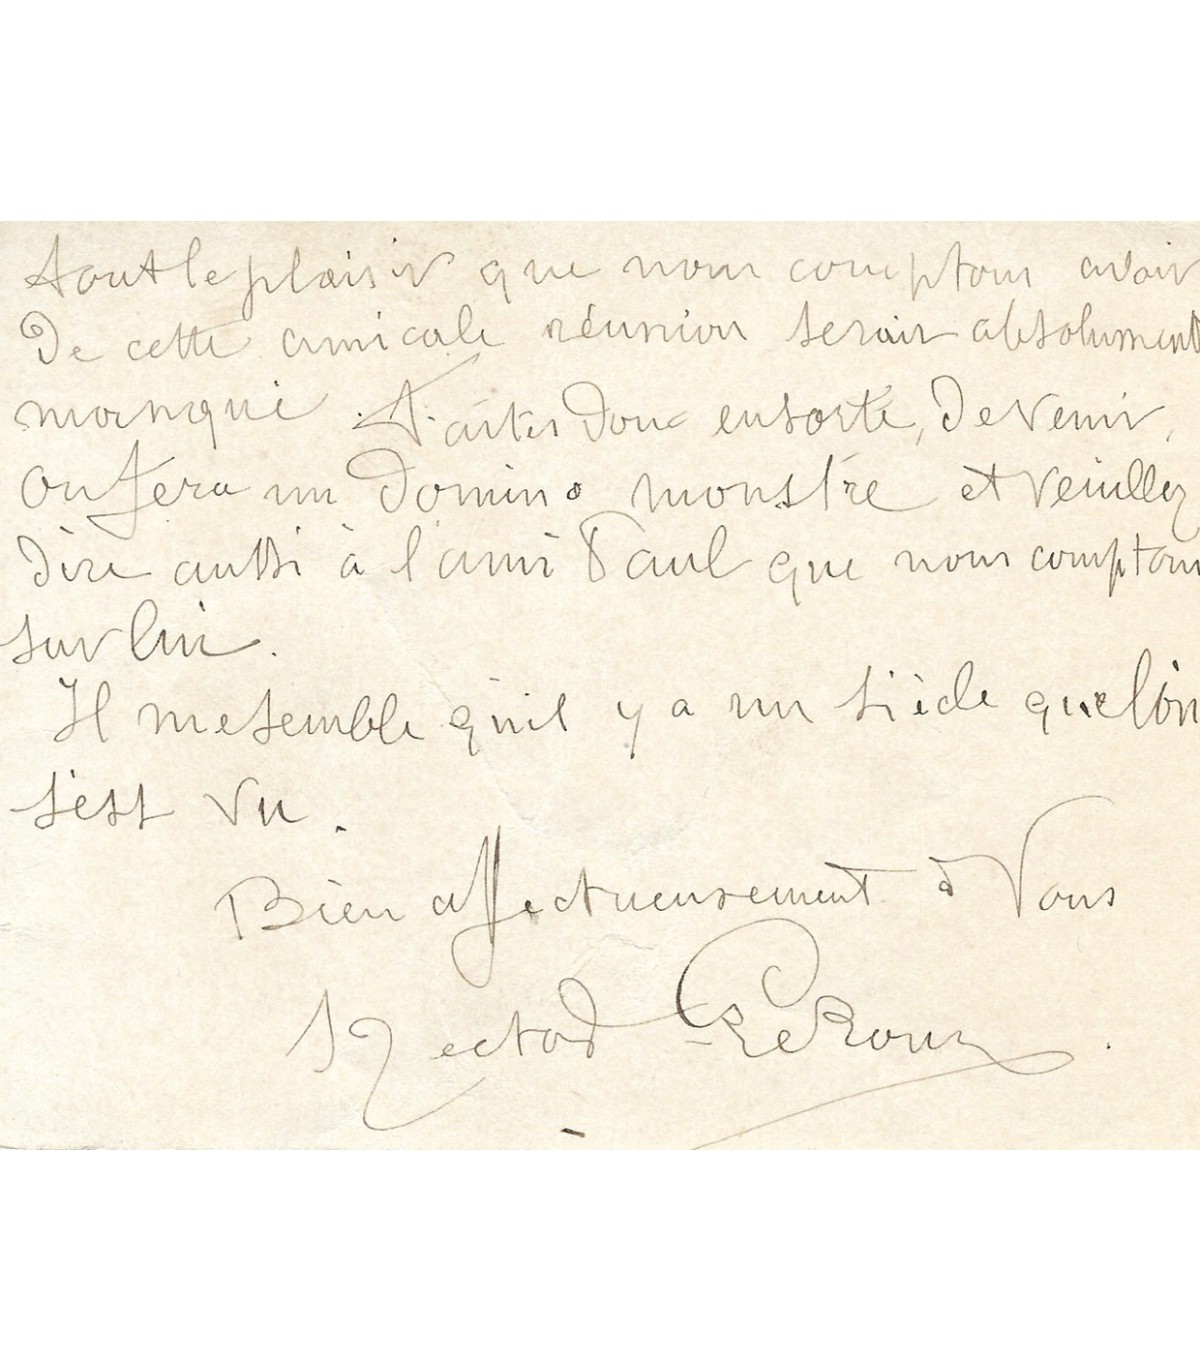 tout le plaisir que nous comptons avoir
de cette amicale réunion serait absolument
manqué. Faites donc ensorte, de venir,
on fera un domino monstre et veuillez
dire aussi à l'ami Paul que nous comptons
sur lui.
Il me semble qu'il y a un siècle que l'on
s'est vu.
Bien affectueusement à Vous
Hector Le Roux.